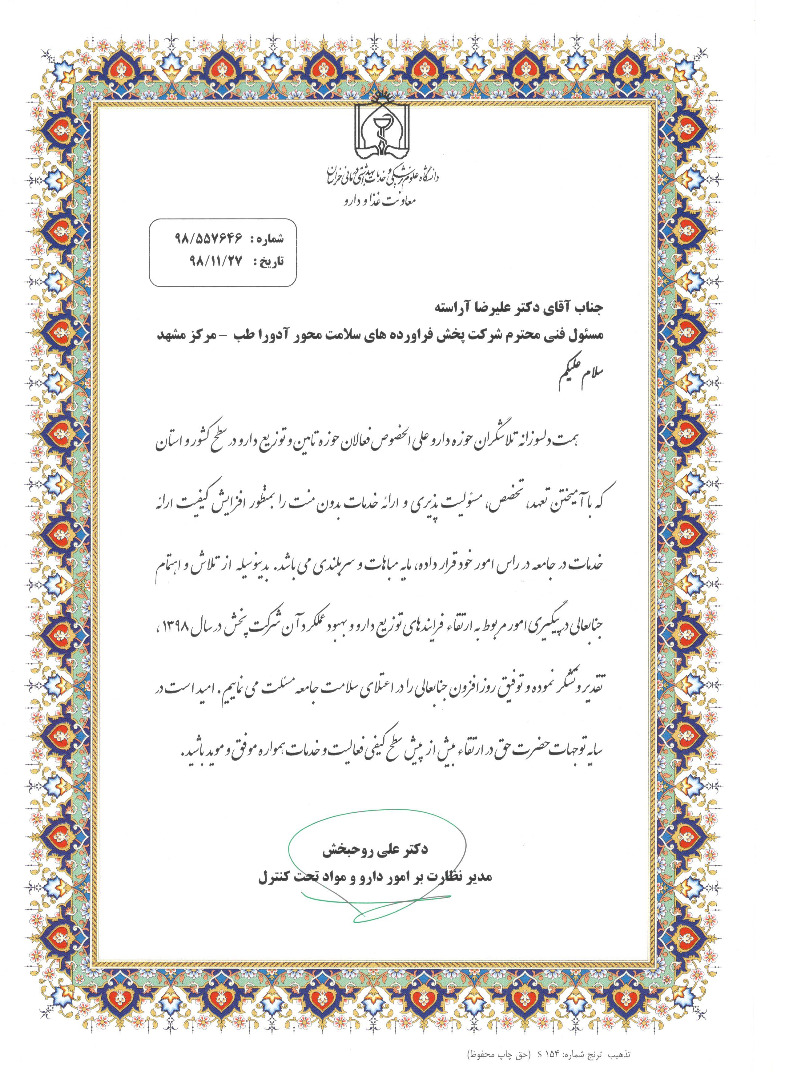 دانشگاه علوم پزشکی و خدمات بهداشتی درمانی خراسان
معاونت غذا و دارو
شماره : ۹۸/۵۵۷۶۴۶
تاریخ : ۹۸/۱۱/۲۷
جناب آقای دکتر علیرضا آراسته
مسئول فنی محترم شرکت پخش فراورده های سلامت محور آدورا طب – مرکز مشهد
سلام علیکم
همت دلسوزانه تلاشگران حوزه دارو علی الخصوص فعالان حوزه تامین و توزیع دارو در سطح کشور و استان
که با آمیختن تعهد، تخصص، مسئولیت پذیری و ارائه خدمات بدون منت را بمنظور افزایش کیفیت ارائه
خدمات در جامعه در راس امور خود قرار داده، مایه مباهات و سربلندی می باشد. بدینوسیله از تلاش و اهتمام
جنابعالی در پیگیری امور مربوط به ارتقاء فرایندهای توزیع دارو و بهبود عملکرد آن شرکت پخش در سال ۱۳۹۸ ،
تقدیر و تشکر نموده و توفیق روز افزون جنابعالی را در اعتلای سلامت جامعه مسئلت می نماییم. امید است در
سایه توجهات حضرت حق در ارتقاء بیش از پیش سطح کیفی فعالیت و خدمات همواره موفق و موید باشید.
دکتر علی روحبخش
مدیر نظارت بر امور دارو و مواد تحت کنترل
تذهیب ترنج شماره: ۱۵۴ S (حق چاپ محفوظ)